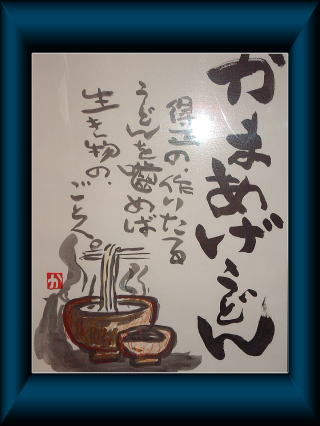 かまあげうどん
得二の作りたる
うどんを嚙めば
生き物のごとく。
か